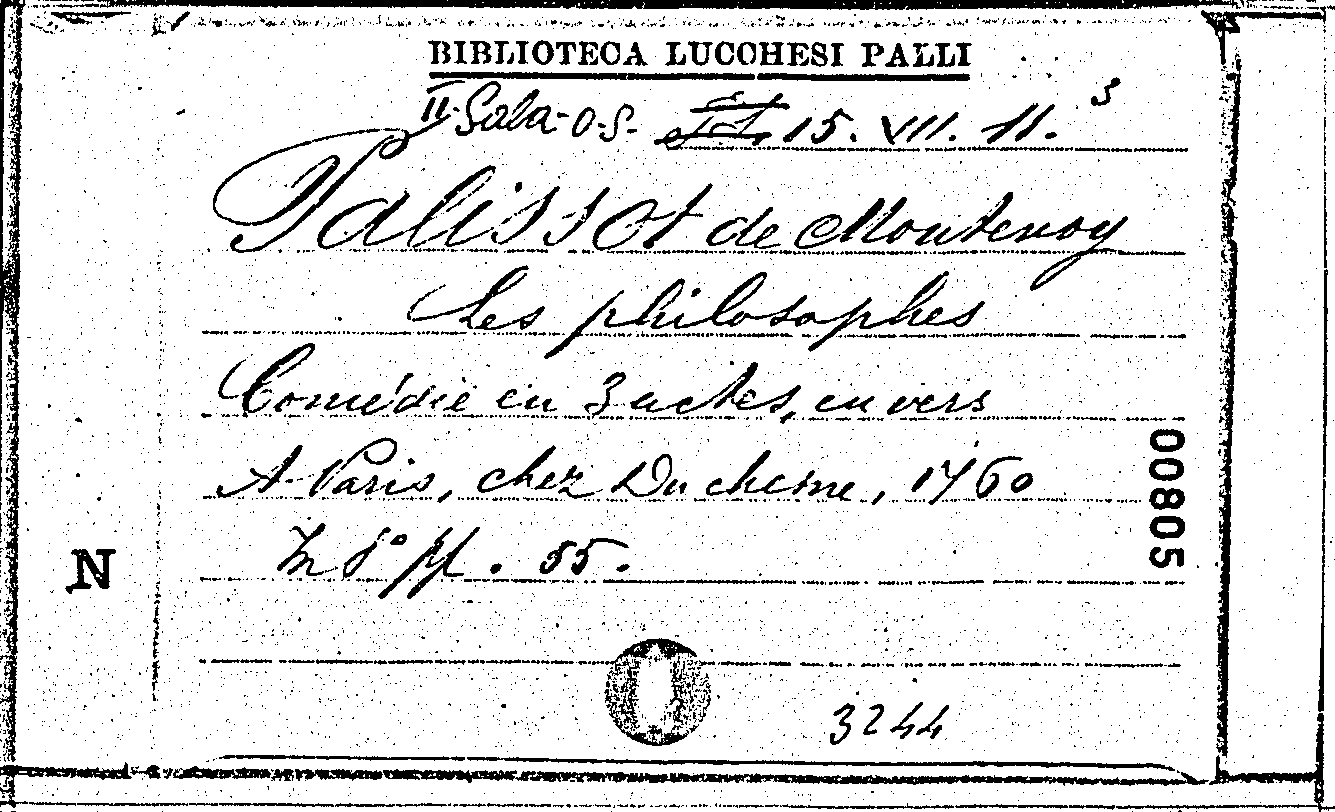 BIBLIOTECA LUCCHESI PALLI
II. Sala-O.S. 15. VII. 11. 3
Palissot de Montenoy
Les philosophes
Comédie en 3 actes, en vers
A Paris, chez Duchesne, 1760
In 8° pp. 55.
00805
N
3244